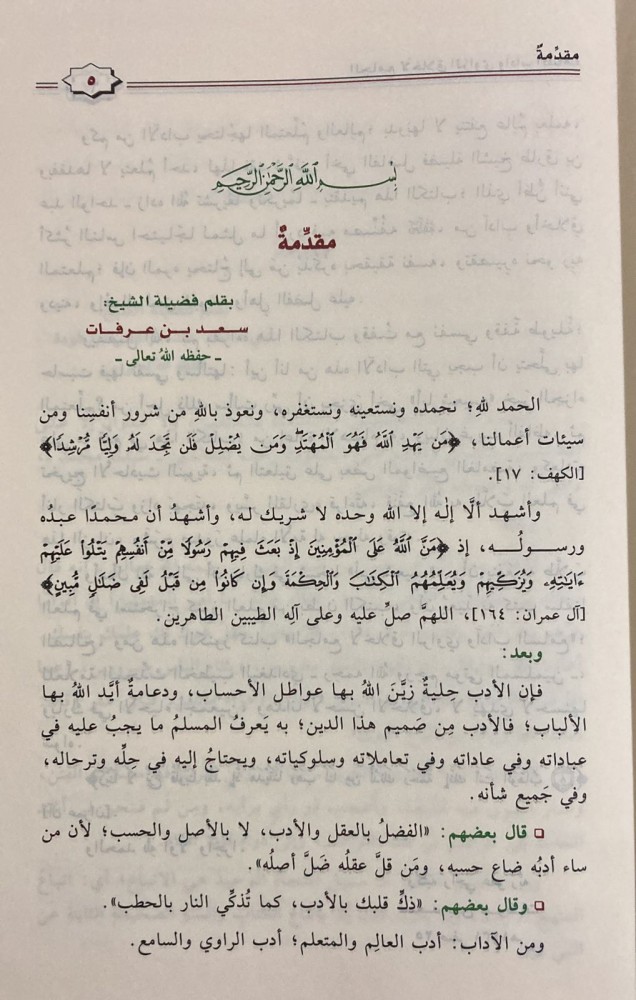 مقدِّمةٌ
٥
بِسْمِ اللَّهِ الرَّحْمَٰنِ الرَّحِيمِ
مقدِّمةٌ
بقلم فضيلة الشيخ:
سعد بن عرفات
ـ حفظه اللهُ تعالى ـ
الحمد للهِ؛ نحمده ونستعينه ونستغفره، ونعوذ باللهِ من شرور أنفسِنا ومن
سيئات أعمالنا، ﴿مَن يَهْدِ ٱللَّهُ فَهُوَ ٱلْمُهْتَدِ ۖ وَمَن يُضْلِلْ فَلَن تَجِدَ لَهُۥ وَلِيًّا مُّرْشِدًا﴾
[الكهف: ١٧].
وأشهد ألَّا إلٰه إلا الله وحده لا شريك له، وأشهدُ أن محمدًا عبدُه
ورسولُـه، إذ ﴿مَنَّ ٱللَّهُ عَلَى ٱلْمُؤْمِنِينَ إِذْ بَعَثَ فِيهِمْ رَسُولًا مِّنْ أَنفُسِهِمْ يَتْلُوا۟ عَلَيْهِمْ
ءَايَـٰتِهِۦ وَيُزَكِّيهِمْ وَيُعَلِّمُهُمُ ٱلْكِتَـٰبَ وَٱلْحِكْمَةَ وَإِن كَانُوا۟ مِن قَبْلُ لَفِى ضَلَـٰلٍ مُّبِينٍ﴾
[آل عمران: ١٦٤]، اللهمَّ صلِّ عليه وعلى آلِه الطيبين الطاهرين.
وبعد:
فإن الأدب حِليةٌ زيَّنَ اللهُ بها عواطل الأحساب، ودعامةٌ أيَّد اللهُ بها
الألباب؛ فالأدب مِن صَميم هذا الدين؛ به يَعرفُ المسلمُ ما يجبُ عليه في
عباداته وفي عاداته وفي تعاملاته وسلوكياته، ويحتاجُ إليه في حِلِّه وترحاله،
وفي جَميع شأنه.
❑ قال بعضهم: «الفضلُ بالعقل والأدب، لا بالأصل والحسب؛ لأن من
ساء أدبُه ضاع حسبه، ومَن قلَّ عقلُه ضَلَّ أصلُه».
❑ وقال بعضهم: «ذكِّ قلبك بالأدب، كما تُذكِّي النار بالحطب».
ومن الآداب: أدبُ العالِم والمتعلم؛ أدب الراوي والسامع.